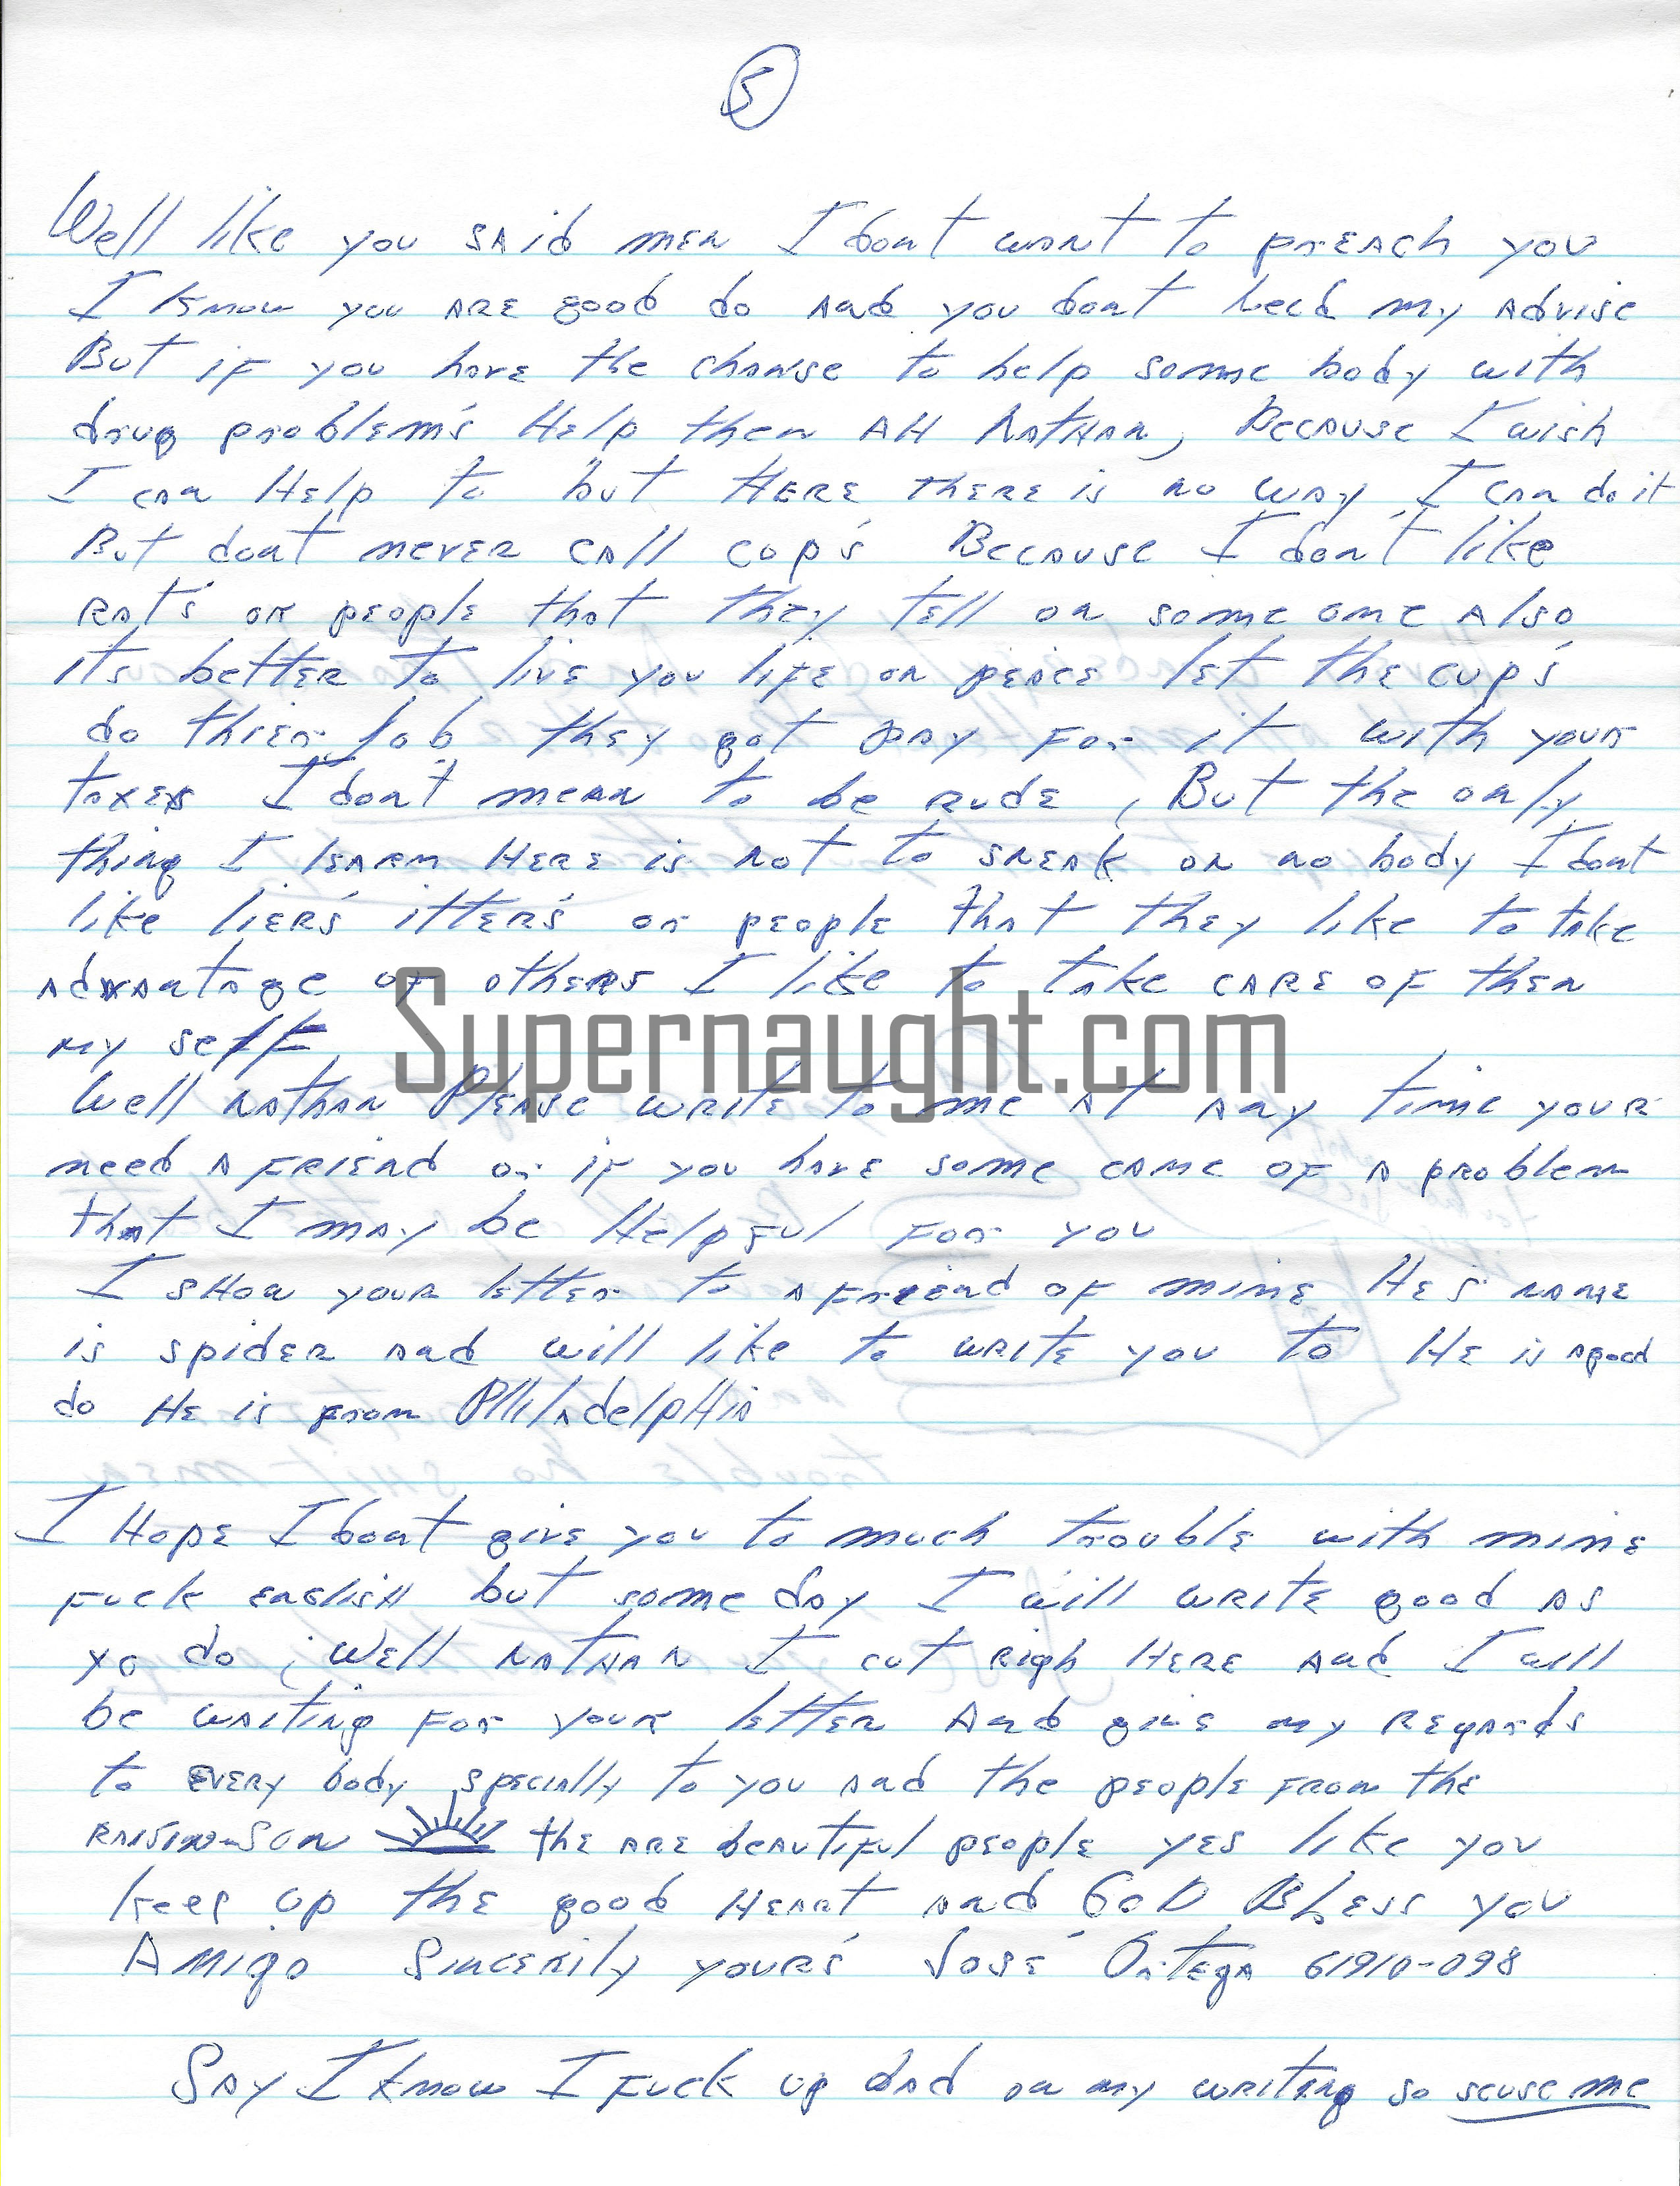 5
Well like you said men I dont want to preach you
I know you are good do and you dont need my advise
But if you have the chanse to help somme body with
drug problem's Help then AH Nathan, Because I wish
I can Help to but HERE THERE is no way I can do it
But dont never call cop's Because I don't like
Rat's or people that they tell on somme one Also
it's better to live you life on peice let the cup's
do thier Job they got pay for it with your
taxes I dont mean to be rude, But the only
thing I learn HERE is not to sneak on no body I dont
like lier's itter's or people that they like to take
advantage of others I like to take care of then
my self
Well Nathan Please write to me at any time your
need a friend or if you have some came of a problem
that I may be Helpful for you
I show your letter to a friend of mine He's name
is spider and will like to write you to He is a good
do He is from PHiladelpHia
I Hope I dont give you to much trouble with mine
fuck english but some day I will write good as
yo do; Well Nathan I cut righ Here and I will
be waiting for your letter And give my regards
to every body specially to you and the people from the
Raising-Son the are beautiful people yes like you
keep up the good Heart and GOD Bless you
Amigo Sincerily your's José Ortega 61910-098
Say I know I fuck up bad on my writing so scuse me
Supernaught.com